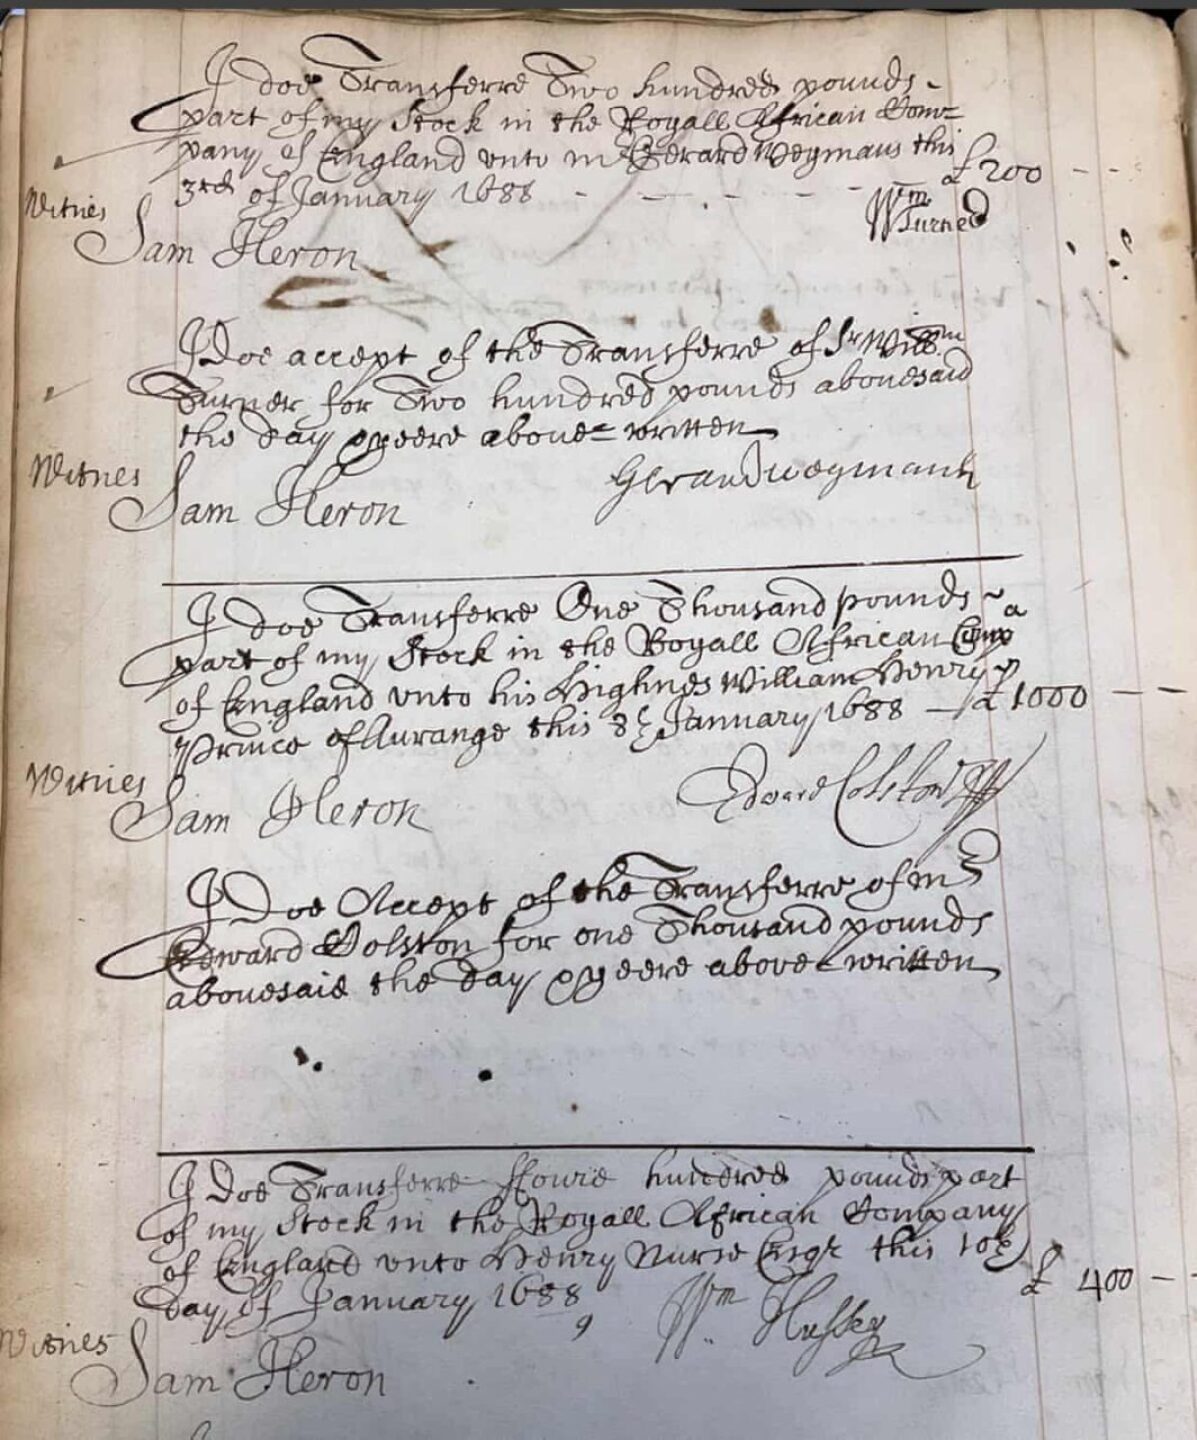 I doe Transferre Two hundred pounds
part of my Stock in the Royall African Com=
pany of England vnto mr Gerard Weymans this
3rd of January 1688 - - - - - £ 200 - -
Wm Turner
Witnes
Sam Heron
I Doe accept of the Transferre of Sr Willm
Turner for Two hundred pounds abouesaid
the day & yeere aboue=written
Witnes
Gerard weymans
Sam Heron
I doe Transferre One Thousand pounds
part of my Stock in the Royall African Comp a
of England vnto his Highnes William Henry
Prince of Aurange this 8th January 1688 - £ 1000 - -
Witnes
Edward Colston
Sam Heron
I Doe Accept of the Transferre of mr
Edward Colston for one Thousand pounds
abouesaid the day & yeere above=written
I Doe Transferre ffoure hundred pounds part
of my Stock in the Royall African Company
of England vnto Henry Nurse Esqr this 10th
day of January 1688 £ 400 - -
9
Wm Hussey
Witnes
Sam Heron